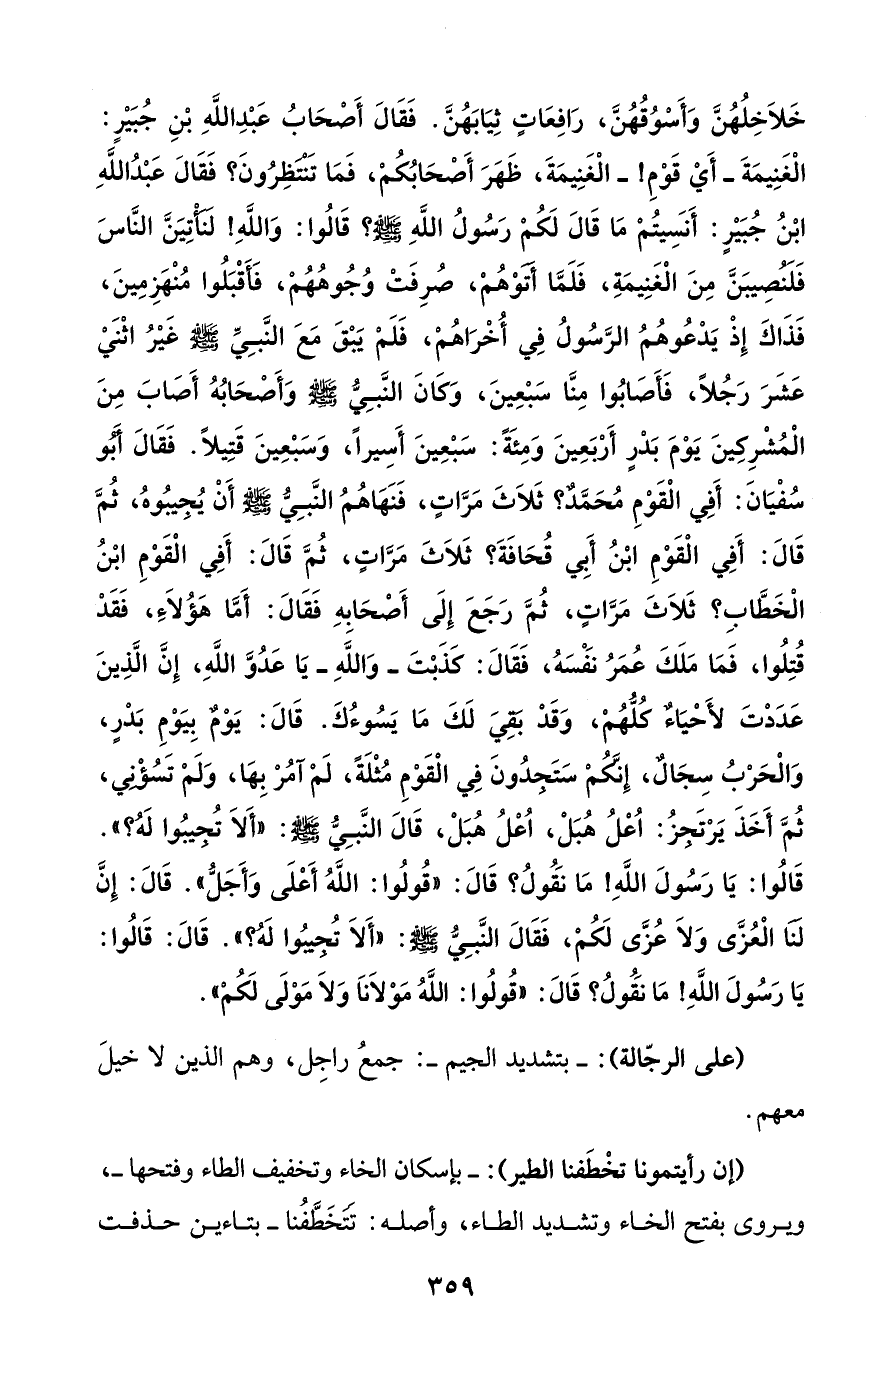 خَلاَخِلُهُنَّ وَأَسْوُقُهُنَّ، رَافِعَاتٍ ثِيَابَهُنَّ. فَقَالَ أَصْحَابُ عَبْدِاللَّهِ بْنِ جُبَيْرٍ:
الْغَنِيمَةَ ـ أَيْ قَوْمِ! ـ الْغَنِيمَةَ، ظَهَرَ أَصْحَابُكُمْ، فَمَا تَنْتَظِرُونَ؟ فَقَالَ عَبْدُاللَّهِ
ابْنُ جُبَيْرٍ: أَنَسِيتُمْ مَا قَالَ لَكُمْ رَسُولُ اللَّهِ ﷺ؟ قَالُوا: وَاللَّهِ! لَنَأْتِيَنَّ النَّاسَ
فَلَنُصِيبَنَّ مِنَ الْغَنِيمَةِ، فَلَمَّا أَتَوْهُمْ، صُرِفَتْ وُجُوهُهُمْ، فَأَقْبَلُوا مُنْهَزِمِينَ،
فَذَاكَ إِذْ يَدْعُوهُمُ الرَّسُولُ فِي أُخْرَاهُمْ، فَلَمْ يَبْقَ مَعَ النَّبِيِّ ﷺ غَيْرُ اثْنَيْ
عَشَرَ رَجُلاً، فَأَصَابُوا مِنَّا سَبْعِينَ، وَكَانَ النَّبِيُّ ﷺ وَأَصْحَابُهُ أَصَابَ مِنَ
الْمُشْرِكِينَ يَوْمَ بَدْرٍ أَرْبَعِينَ وَمِئَةً: سَبْعِينَ أَسِيراً، وَسَبْعِينَ قَتِيلاً. فَقَالَ أَبُو
سُفْيَانَ: أَفِي الْقَوْمِ مُحَمَّدٌ؟ ثَلاَثَ مَرَّاتٍ، فَنَهَاهُمُ النَّبِيُّ ﷺ أَنْ يُجِيبُوهُ، ثُمَّ
قَالَ: أَفِي الْقَوْمِ ابْنُ أَبِي قُحَافَةَ؟ ثَلاَثَ مَرَّاتٍ، ثُمَّ قَالَ: أَفِي الْقَوْمِ ابْنُ
الْخَطَّابِ؟ ثَلاَثَ مَرَّاتٍ، ثُمَّ رَجَعَ إِلَى أَصْحَابِهِ فَقَالَ: أَمَّا هَؤُلاَءِ، فَقَدْ
قُتِلُوا، فَمَا مَلَكَ عُمَرُ نَفْسَهُ، فَقَالَ: كَذَبْتَ ـ وَاللَّهِ ـ يَا عَدُوَّ اللَّهِ، إِنَّ الَّذِينَ
عَدَدْتَ لأَحْيَاءٌ كُلُّهُمْ، وَقَدْ بَقِيَ لَكَ مَا يَسُوءُكَ. قَالَ: يَوْمٌ بِيَوْمِ بَدْرٍ،
وَالْحَرْبُ سِجَالٌ، إِنَّكُمْ سَتَجِدُونَ فِي الْقَوْمِ مُثْلَةً، لَمْ آمُرْ بِهَا، وَلَمْ تَسُؤْنِي،
ثُمَّ أَخَذَ يَرْتَجِزُ: اُعْلُ هُبَلْ، اُعْلُ هُبَلْ، قَالَ النَّبِيُّ ﷺ: «أَلاَ تُجِيبُوا لَهُ؟».
قَالُوا: يَا رَسُولَ اللَّهِ! مَا نَقُولُ؟ قَالَ: «قُولُوا: اللَّهُ أَعْلَى وَأَجَلُّ». قَالَ: إِنَّ
لَنَا الْعُزَّى وَلاَ عُزَّى لَكُمْ، فَقَالَ النَّبِيُّ ﷺ: «أَلاَ تُجِيبُوا لَهُ؟». قَالَ: قَالُوا:
يَا رَسُولَ اللَّهِ! مَا نَقُولُ؟ قَالَ: «قُولُوا: اللَّهُ مَوْلاَنَا وَلاَ مَوْلَى لَكُمْ».
(على الرجّالة): ـ بتشديد الجيم ـ: جمعُ راجِل، وهم الذين لا خيلَ
معهم.
(إن رأيتمونا تخْطَفنا الطير): ـ بإسكان الخاء وتخفيف الطاء وفتحها ـ،
ويروى بفتح الخاء وتشديد الطاء، وأصله: تَتَخَطَّفُنا ـ بتاءين حذفت
٣٥٩